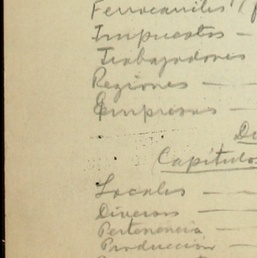 Ferrocarriles
Impuestos —
Trabajadores
Regiones —
Empresas —
Capítulos
Locales —
Diversos —
Pertenencia
Produccion —